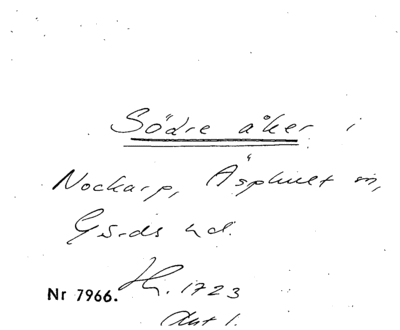 Södre åker i
Nockarp, Äsphult sn,
Gärds hd.
Nr 7966. Hh. 1723
Akt 1.